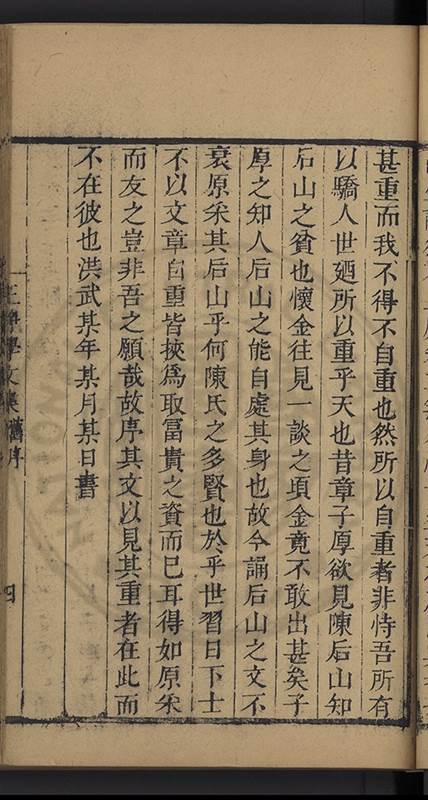 甚重而我不得不自重也然所以自重者非恃吾所有
以驕人世廼所以重乎天也昔章子厚欲見陳后山知
后山之貧也懷金往見一談之頃金竟不敢出甚矣子
厚之知人后山之能自處其身也故今誦后山之文不
衰原采其后山乎何陳氏之多賢也於乎世習日下士
不以文章自重皆挾為取冨貴之資而巳耳得如原采
而友之豈非吾之願哉故序其文以見其重者在此而
不在彼也洪武某年某月某日書
王靜學文集 舊序 四